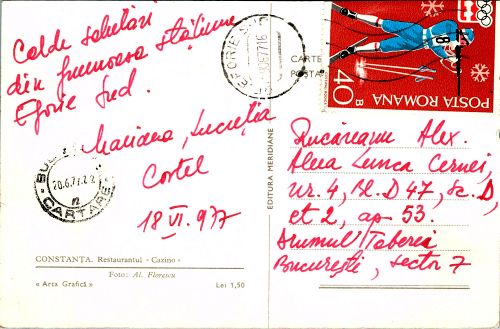 Calde salutări
din frumoasa stațiune
Eforie Sud.
Mariana, Lucreția
Costel
18 VI. 977
EFORIE SUD
CARTE
POSTA
40 B
POSTA ROMANA
20.6.77
CARTARE
CONSTANȚA. Restaurantul - Cazino -
Foto: Al. Florescu
« Arta Grafică »
Lei 1,50
EDITURA MERIDIANE
Rucăreanu Alex.
Aleea Lunca Cernei,
nr. 4, Bl. D 47, sc. D,
et 2, ap. 53.
Drumul Taberei
București, sector 7